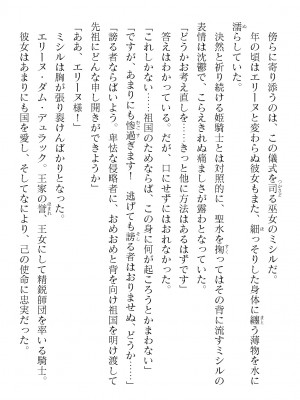 傍らに寄り添うのは、この儀式を司る巫女のミシルだ。
年の頃はエリーヌと変わらぬ彼女もまた、細っそりした身体に纏う薄物を水に
濡らしていた。
決然と祈り続ける姫騎士とは対照的に、聖水を掬ってはその背に流すミシルの
表情は沈鬱で、こらえきれぬ痛ましさが露わとなっていた。
「どうかお考え直しを……きっと他に方法はあるはずです」
答えはわかっている。だが、口にせずにはおれなかった。
「これしかない……祖国のためならば、この身に何が起ころうとかまわない」
「ですが、あまりにも惨過ぎます！　逃げても謗る者はおりませぬ、どうか……」
「謗る者ならばいよう。卑怯な侵略者に、おめおめと背を向け祖国を明け渡して
先祖にどんな申し開きができようか」
「ああ、エリーヌ様！」
ミシルは胸が張り裂けんばかりとなった。
エリーヌ・ダム・デュラック。王家の誉。王女にして精鋭師団を率いる騎士。
彼女はあまりにも国を愛し、そしてなにより、己の使命に忠実だった。